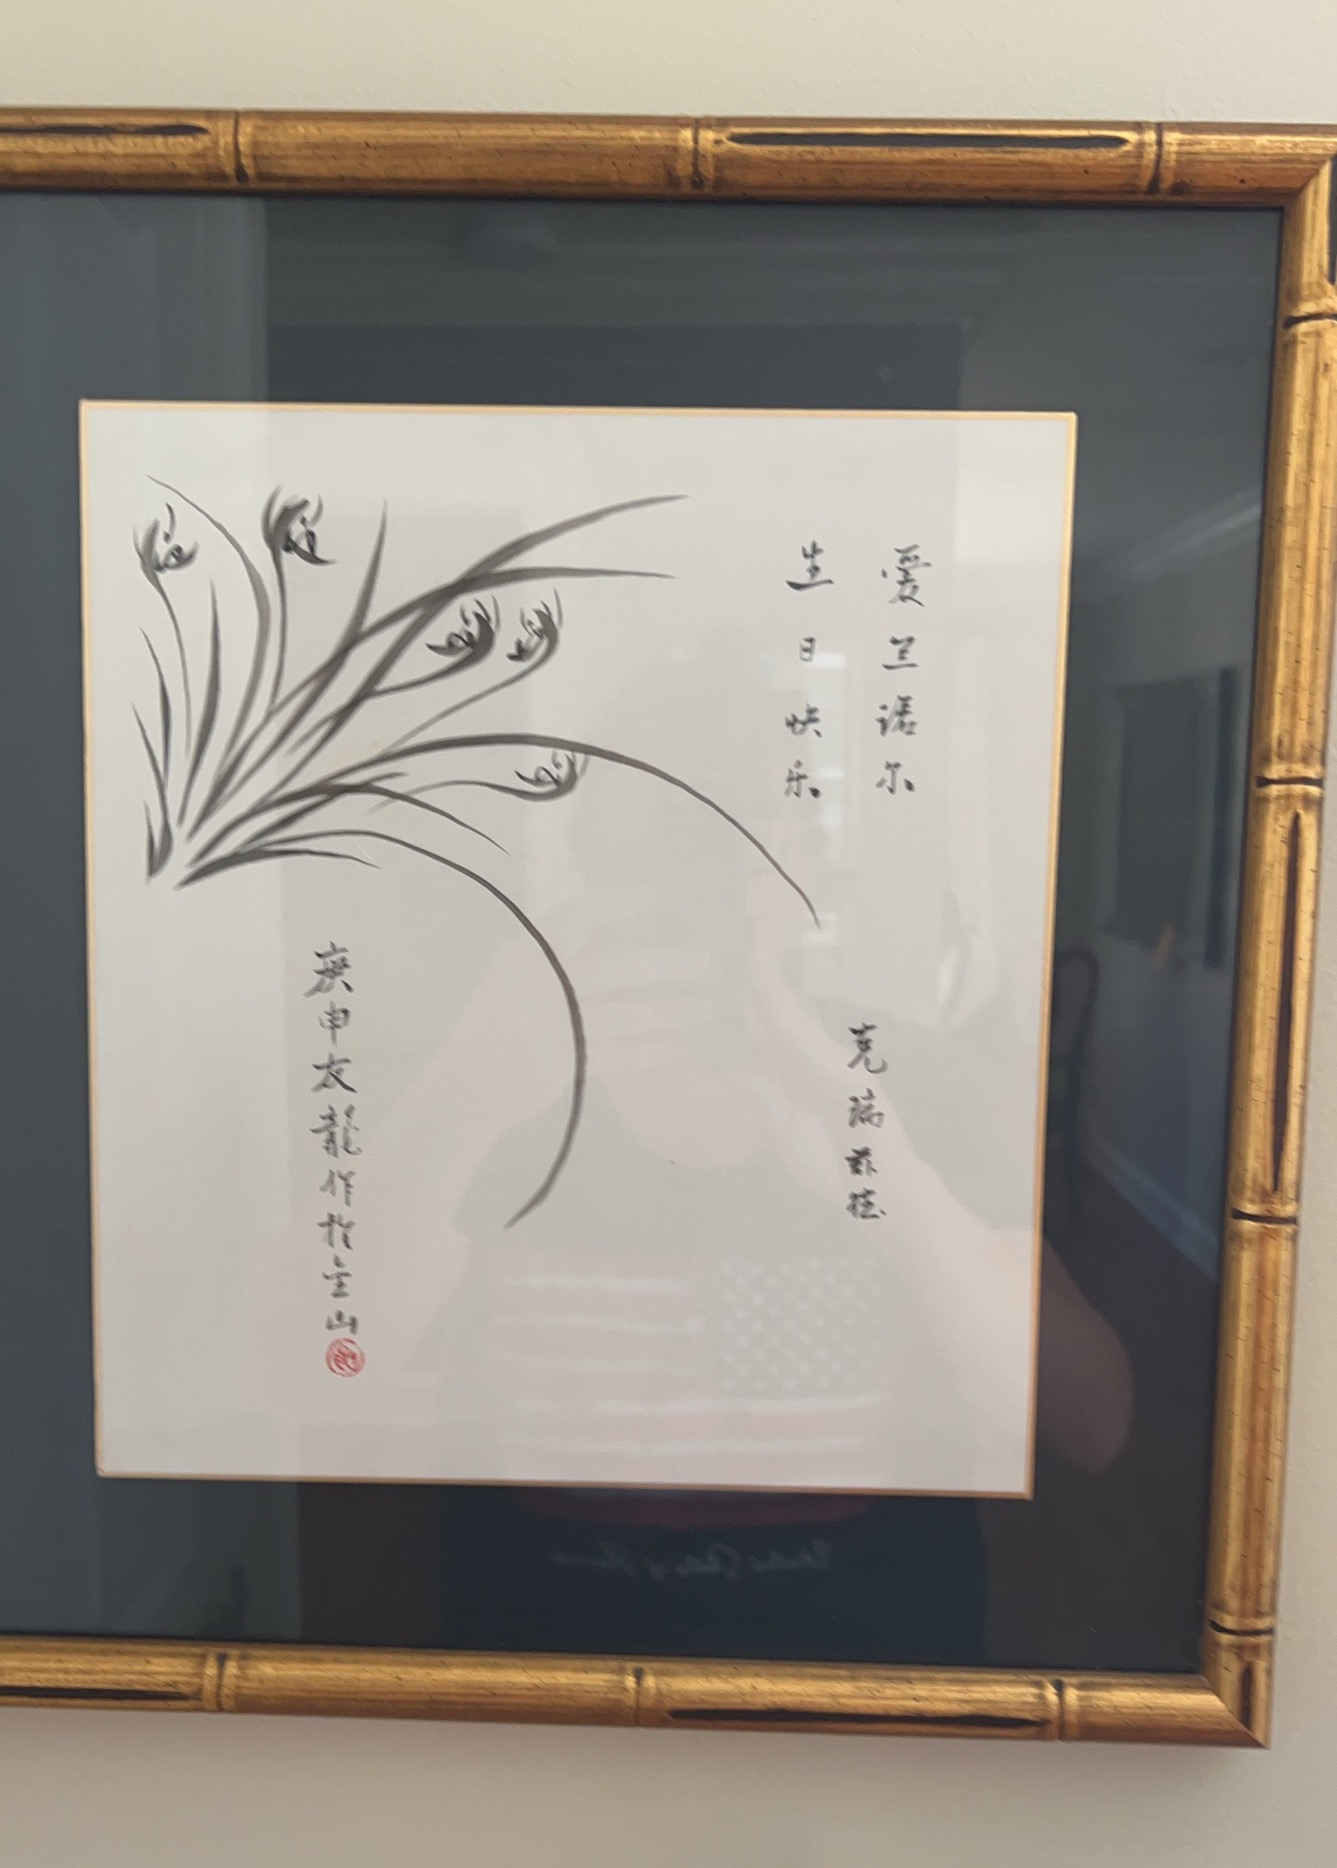 爱兰诺尔
生日快乐
克瑞菲德
庚申友龍作於金山